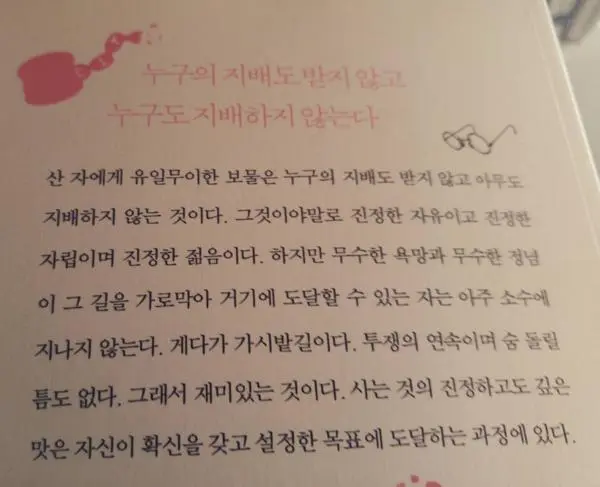 누구의 지배도 받지 않고
누구도 지배하지 않는다
산 자에게 유일무이한 보물은 누구의 지배도 받지 않고 아무도
지배하지 않는 것이다. 그것이야말로 진정한 자유이고 진정한
자립이며 진정한 젊음이다. 하지만 무수한 욕망과 무수한 정념
이 그 길을 가로막아 거기에 도달할 수 있는 자는 아주 소수에
지나지 않는다. 게다가 가시밭길이다. 투쟁의 연속이며 숨 돌릴
틈도 없다. 그래서 재미있는 것이다. 사는 것의 진정하고도 깊은
맛은 자신이 확신을 갖고 설정한 목표에 도달하는 과정에 있다.